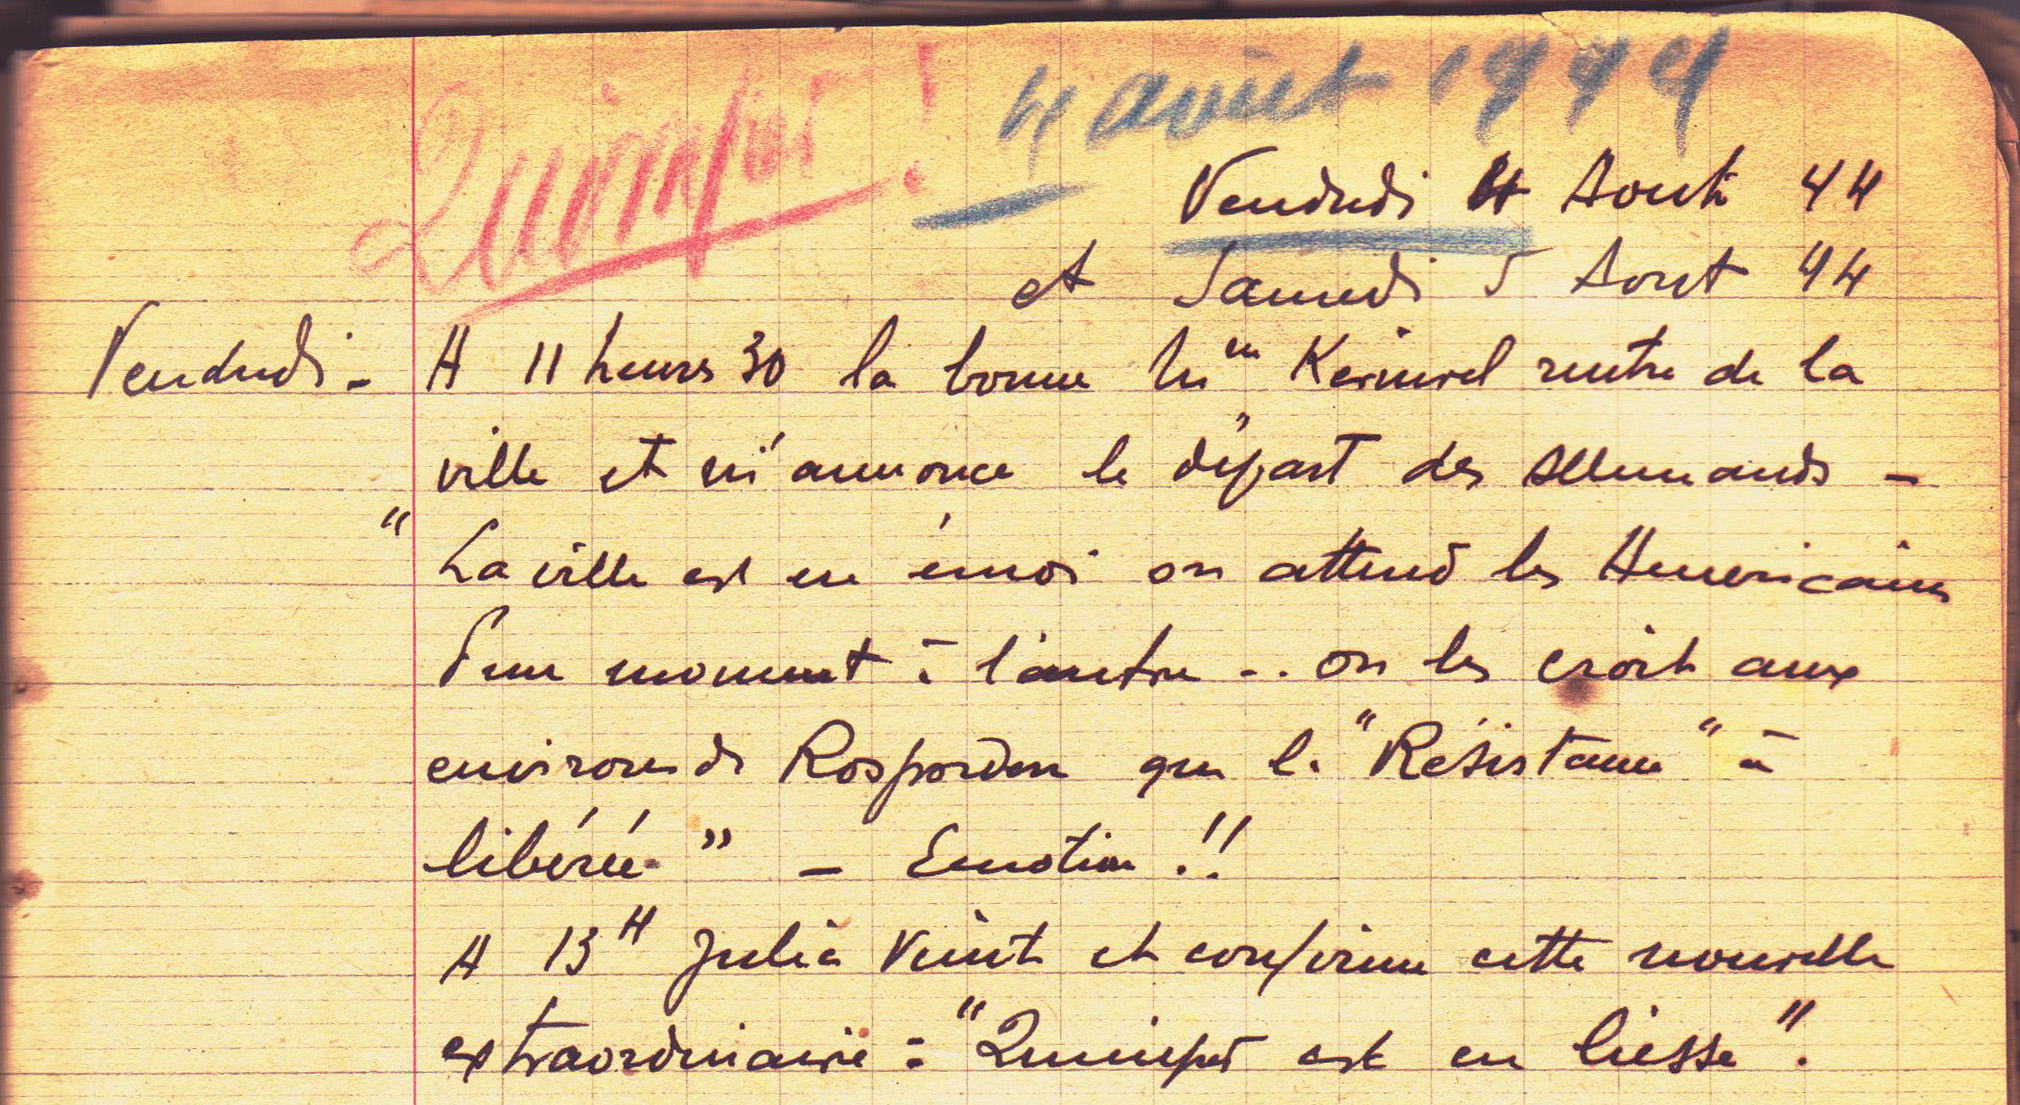 Quimper ! 4 août 1944
Vendredi 4 Août 44
et Samedi 5 Aout 44
Vendredi - A 11 heures 30 la bonne Mme rentre de la
ville et m'annonce le départ des Allemands -
" La ville est en émoi on attend les Americains
d'un moment à l'autre -.. on les croit aux
environs de Rosporden que la "Résistance" à
libérée " - Emotion !!
A 13H Julia vient et confirme cette nouvelle
extraordinaire : "Quimper est en liesse".